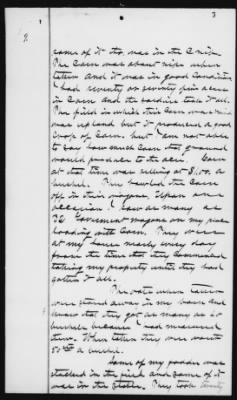 3
2
some of it tho was in the Crib.
The Corn was about ripe when
taken and it was in good Condition
I had seventy or seventy five acres
in Corn and the soldiers took it all.
The field in which this Corn was
was upland but it produced a good
Crop of Corn, but I am not able
to say how much Corn the ground
would produce to the acre. Corn
at that time was selling at $1.00 a
bushel. They hauled the Corn
off in their wagons. Upon one
occasion I saw as many as
Goverment wagons on my place
loading with Corn. They were
at my house nearly every day
from the time that they Commenced
taking my property until they had
gotten it all.
The oats when taken
were stored away in my barn and I
know that they got as many as
bushels because I had measured
them. When taken they were worth
50 cts a bushel.
Some of my fodder was
stacked in the field and some of it
was in the stable. They took twenty